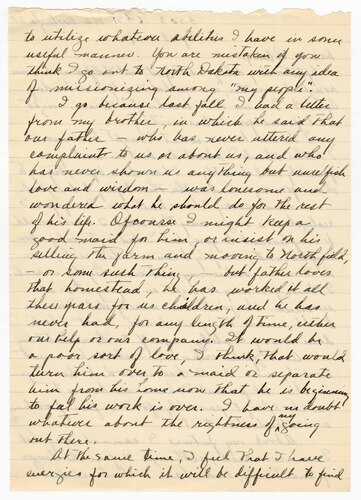 to utilize whatever abilities I have in some
useful manner. You are mistaken if you
think I go out to North Dakota with any idea
of missionizing among "my people".
I go because last fall I had a letter
from my brother, in which he said that
our father – who has never uttered any
complaint to us or about us, and who
has never shown us anything but unselfish
love and wisdom – was lonesome and
wondered what he should do for the rest
of his life. Of course I might keep a
good maid for him, or insist on his
selling the farm and moving to Northfield,
– or some such thing, but father loves
that homestead, he has worked it all
these years for us children, and he has
never had, for any length of time, either
our help or our company. It would be
a poor sort of love, I think, that would
turn him over to a maid or separate
him from his home now that he is beginning
to feel his work is over. I have no doubt
whatever about the rightness of my going
out there.
At the same time, I feel that I have
energies for which it will be difficult to find